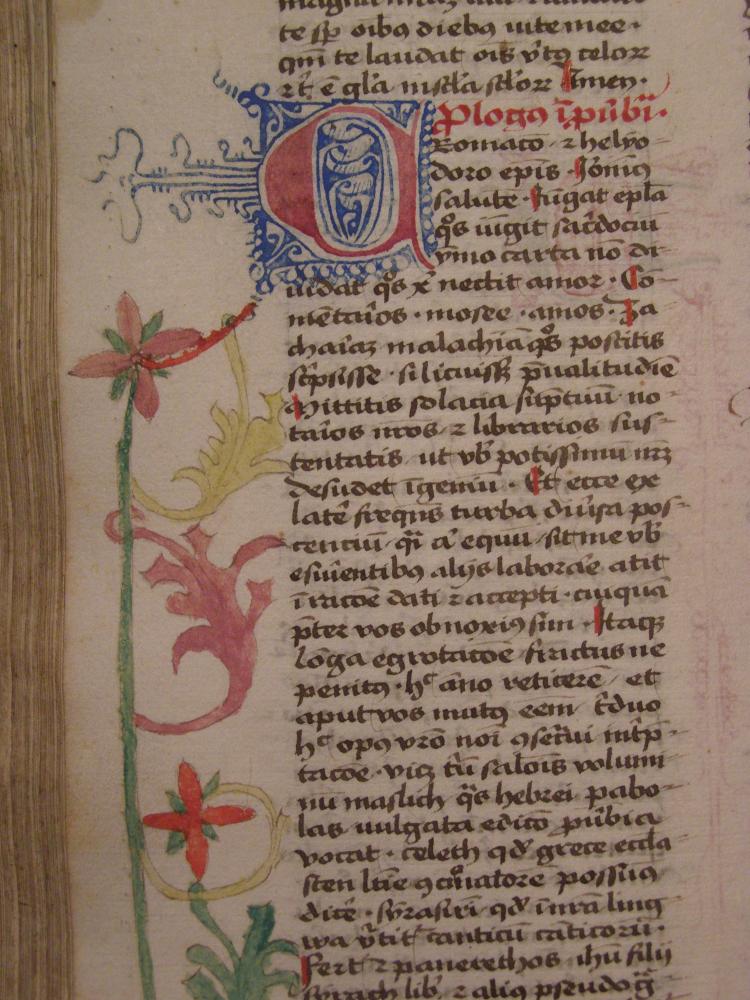 te sp̄ oībꝯ diebꝯ uite mee ·
qm̄ te laudat oīs v̄tꝯ celoꝝ
⁊ t̄ ē gl̄a in sc̄la scl̄oꝝ Amen ·
Ꝓlogꝯ ī ꝓūbiī ·
Romacō · ⁊ helyo
doro epīs · Jōnīꝯ
salutē · Jūgat epl̄a
qͦs iūgit sac̄dociū
ymo carta nō di
uidat qͦs xͥ nectit amor · Cō-
mētaīos · mosee · amos · Za
chaīaꝫ malachiā qͦꝫ poscitis
sc̄psisse · si licuisſꝫ p̄ ualitudiē
Mittitis solacia sūptuū no-
taīos nr̄os ⁊ librarios sus-
tentatis · ut vb̄ potissimū nr̄ꝫ
desudet īgeniū · Et ecce ex
latē freqns̄ turba diūsa pos-
cenciū · qͣī a̅ equū sit me vb̄
esuientibꝯ alijs laborāe aūt
ī racōe dati ⁊ accepti · cuiquā
p̄ter vos obnoxiꝯ sim · Itaqꝫ
lōga egrotacōe fractus ne
penitꝯ · hͨ ano reticerē · et
aput vos mutꝯ eēm · t̄duo
hͨ opꝯ vr̄o noī ꝯsec̄ui īnt̄p̄-
tacōe · vicꝫ t̄ū salōīs volumi
nū maslich qͣs hebrei p̄abo-
las uulgata edicō ꝓūbia
vocat · celeth qd̄ grece eccl̄a
sten ltīe ꝯcīnatorē possūꝯ
dic̄e · syrasirī qd̄ ī nr̄a ling
wa v̄tit̄ canticū cāticorū ·
Fert̄ ⁊ panerethos · ih̄u filij
syrach lib̄ · ⁊ aliꝯ pseudogͣ